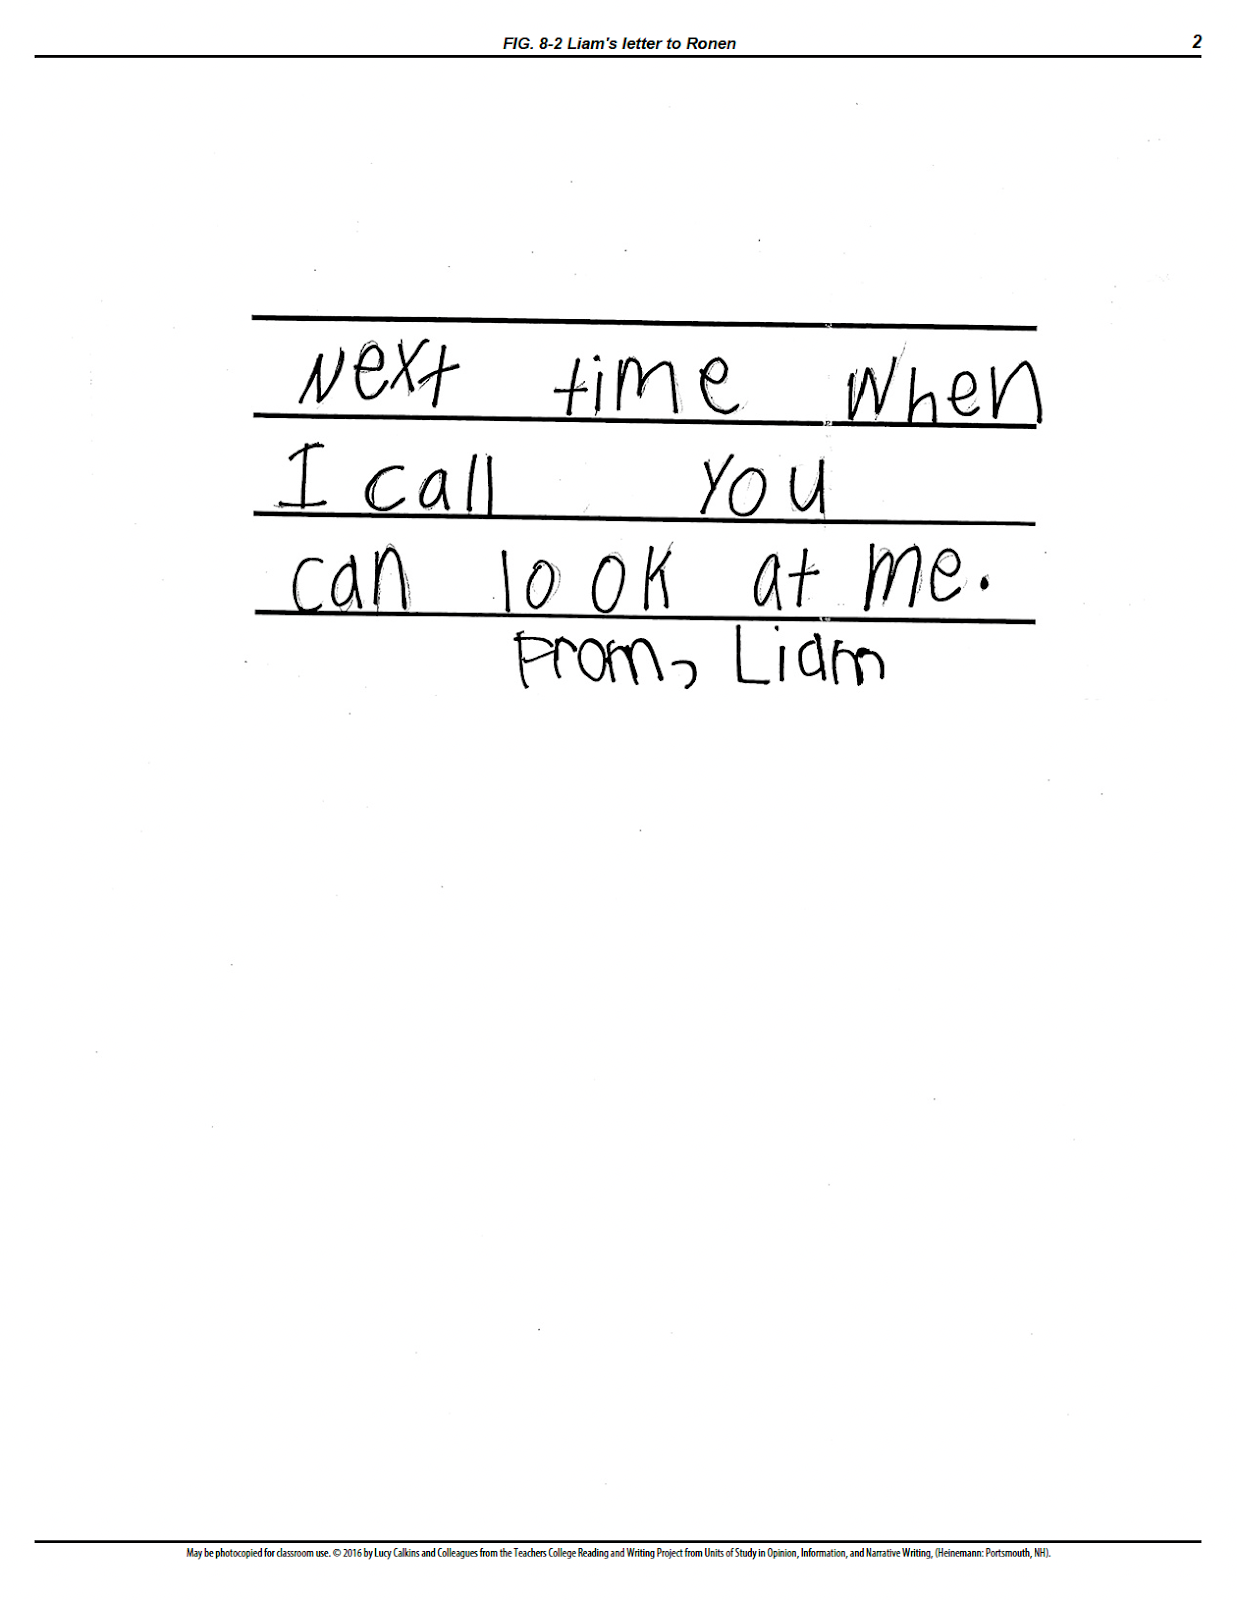 FIG. 8-2 Liam's letter to Ronen 2
Next time When
I call You
can look at me.
From, Liam
May be photocopied for classroom use. © 2016 by Lucy Calkins and Colleagues from the Teachers College Reading and Writing Project from Units of Study in Opinion, Information, and Narrative Writing, (Heinemann: Portsmouth, NH).